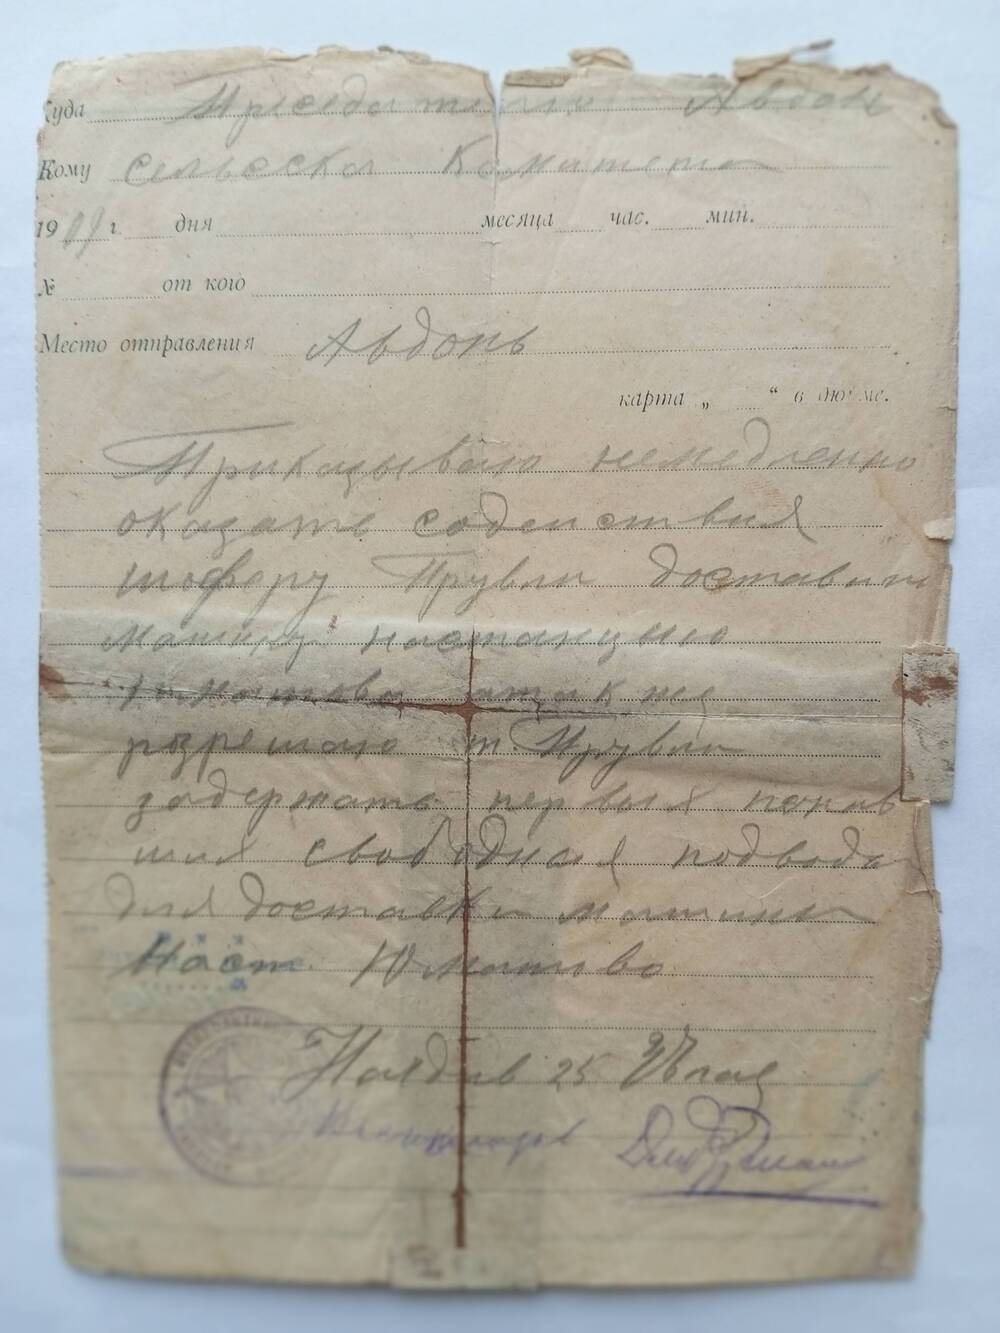 Куда Председателю Авдон
Кому сельска Комитета
1919 г. дня месяца час. мин.
№ от кого
Место отправления Авдонь
карта „ “ в дюйме.
Приказываю немедленно
оказать содействия
шоферу Прувли доставит
машину настанцию
атакже
розрешаю т. Прувли
задержать первых попав
шия свободная подвода
для доставки машины
Наст. Юматово
Начдив 25